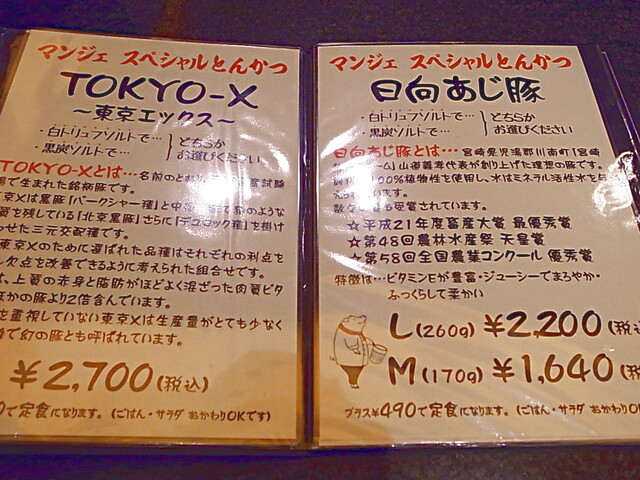 マンジェ スペシャルとんかつ
TOKYO-X
〜東京エックス〜
・白トリュフソルトで…
・黒炭ソルトで…
どちらか
お選びください
TOKYO-Xとは…名前のとおり
試験
場で生まれた銘柄豚です。
京Xは黒豚「バークシャー種」と中
のような
質を残している「北京黒豚」さらに「デュロック種」を掛け
わせた三元交配種です。
東京Xのために選ばれた品種はそれぞれの利点を
し欠点を改善できるように考えられた組合せです。
は、上質の赤身と脂肪がほどよく混ざった肉質ビタ
ほかの豚より2倍含んでいます。
を重視していない東京Xは生産量がとても少なく
で幻の豚とも呼ばれています。
¥2,700(税込)
0で定食になります。(ごはん・サラダ おかわりOKです)
マンジェ スペシャルとんかつ
日向あじ豚
・白トリュフソルトで…
・黒炭ソルトで…
どちらか
お選びください
日向あじ豚とは…宮崎県児湯郡川南町(宮崎
ーム)山道義孝代表が創り上げた理想の豚です。
100%植物性を使用し、水はミネラル活性水を与
数々
も受賞されています。
☆平成21年度畜産大賞 最優秀賞
☆第48回農林水産祭 天皇賞
☆第58回全国農業コンクール 優秀賞
特徴は…ビタミンEが豊富・ジューシーでまろやか・
ふっくらして柔かい
L(260g) ¥2,200(税
M(170g) ¥1,640(税
プラス¥490で定食になります。(ごはん・サラダ おかわりOK